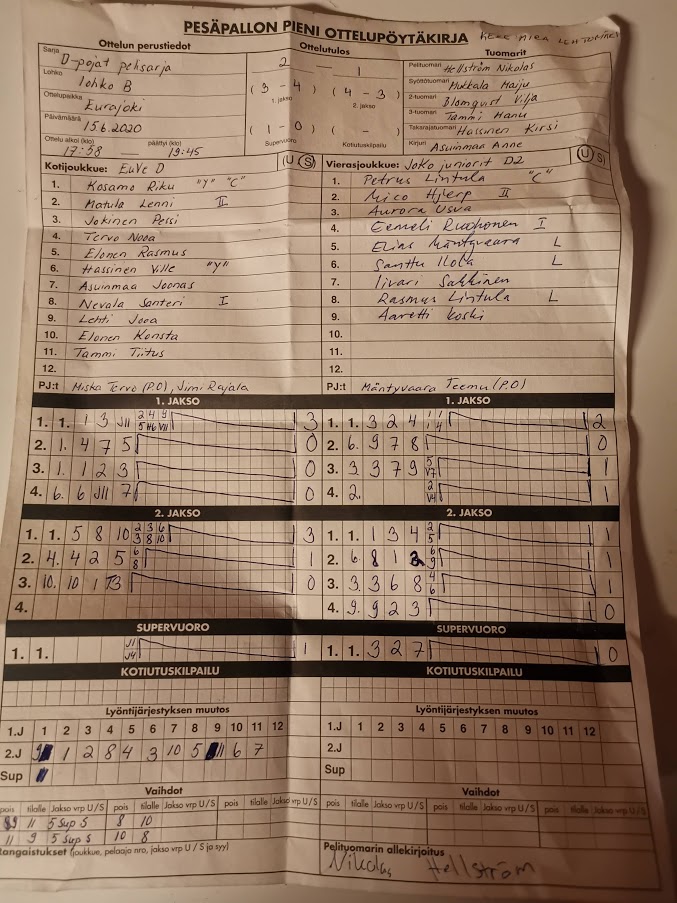 PESÄPALLON PIENI OTTELUPÖYTÄKIRJA
Ottelun perustiedot
Sarja D-pojat peksarja
Lohko lohko B
Ottelupaikka Eurajoki
Päivämäärä 15.6.2020
Ottelu alkoi (klo) 17:58 päättyi (klo) 19:45
Ottelutulos
2 — 1
(3 - 4) (4 - 3)
1. jakso 2. jakso
(1 - 0) ( - )
Supervuoro Kotiutuskilpailu
Tuomarit
Pelituomari Hellström Nikolas
Syöttötuomari Mukkala Maiju
2-tuomari Blomqvist Vilja
3-tuomari Tammi Manu
Takarajatuomari Hassinen Kirsi
Kirjuri Asuinmaa Anne
Kotijoukkue: EuVe D (U S)
1. Kosamo Riku "Y" "C"
2. Matula Lenni II
3. Jokinen Pessi
4. Tervo Nooa
5. Elonen Rasmus
6. Hassinen Ville "Y"
7. Asuinmaa Joonas
8. Nevala Santeri I
9. Lehti Jooa
10. Elonen Konsta
11. Tammi Tiitus
12.
PJ:t Miska Tervo (P.O), Jimi Rajala
Vierasjoukkue: JoKo juniorit D2 (U S)
1. Petrus Lintula "C"
2. Mico Hjerp II
3. Aurora Usva
4. Eemeli Ruohonen I
5. Elias Mäntyvaara L
6. Santtu Ilola L
7. Iivari Sakkinen
8. Rasmus Lintula L
9. Aaretti Koski
10.
11.
12.
PJ:t Mäntyvaara Teemu (P.O)
1. JAKSO
1. 1. 1 3 JII 3
2. 1. 4 7 5 0
3. 1. 1 2 3 0
4. 6. 6 JII 7 0
1. JAKSO
1. 1. 3 2 4 2
2. 6. 9 7 8 0
3. 3 3 7 9 5 V7 1
4. 2. 2 V4 1
2. JAKSO
1. 1. 5 8 10 2 3 6 3 8 10 3
2. 4. 4 2 5 6 8 1
3. 10. 10 1 T3 0
4.
2. JAKSO
1. 1. 1 3 4 2 5 1
2. 6. 8 1 6 9 1
3. 3. 3 6 8 4 6 1
4. 9. 9 2 3 0
SUPERVUORO
1. 1. J1 J4 1
SUPERVUORO
1. 1. 3 2 7 0
KOTIUTUSKILPAILU
KOTIUTUSKILPAILU
Lyöntijärjestyksen muutos
1.J 1 2 3 4 5 6 7 8 9 10 11 12
2.J 9 1 2 8 4 3 10 5 11 6 7
Sup
Lyöntijärjestyksen muutos
1.J 1 2 3 4 5 6 7 8 9 10 11 12
2.J
Sup
Vaihdot
pois tilalle Jakso vrp U/S pois tilalle Jakso vrp U/S pois tilalle Jakso vrp U/S
9 11 5 Sup S 8 10
11 9 5 Sup S 10 8
Vaihdot
pois tilalle Jakso vrp U/S pois tilalle Jakso vrp U/S pois tilalle Jakso vrp U/S
Rangaistukset (joukkue, pelaaja nro, jakso vrp U/S ja syy)
Pelituomarin allekirjoitus
Nikolas Hellström